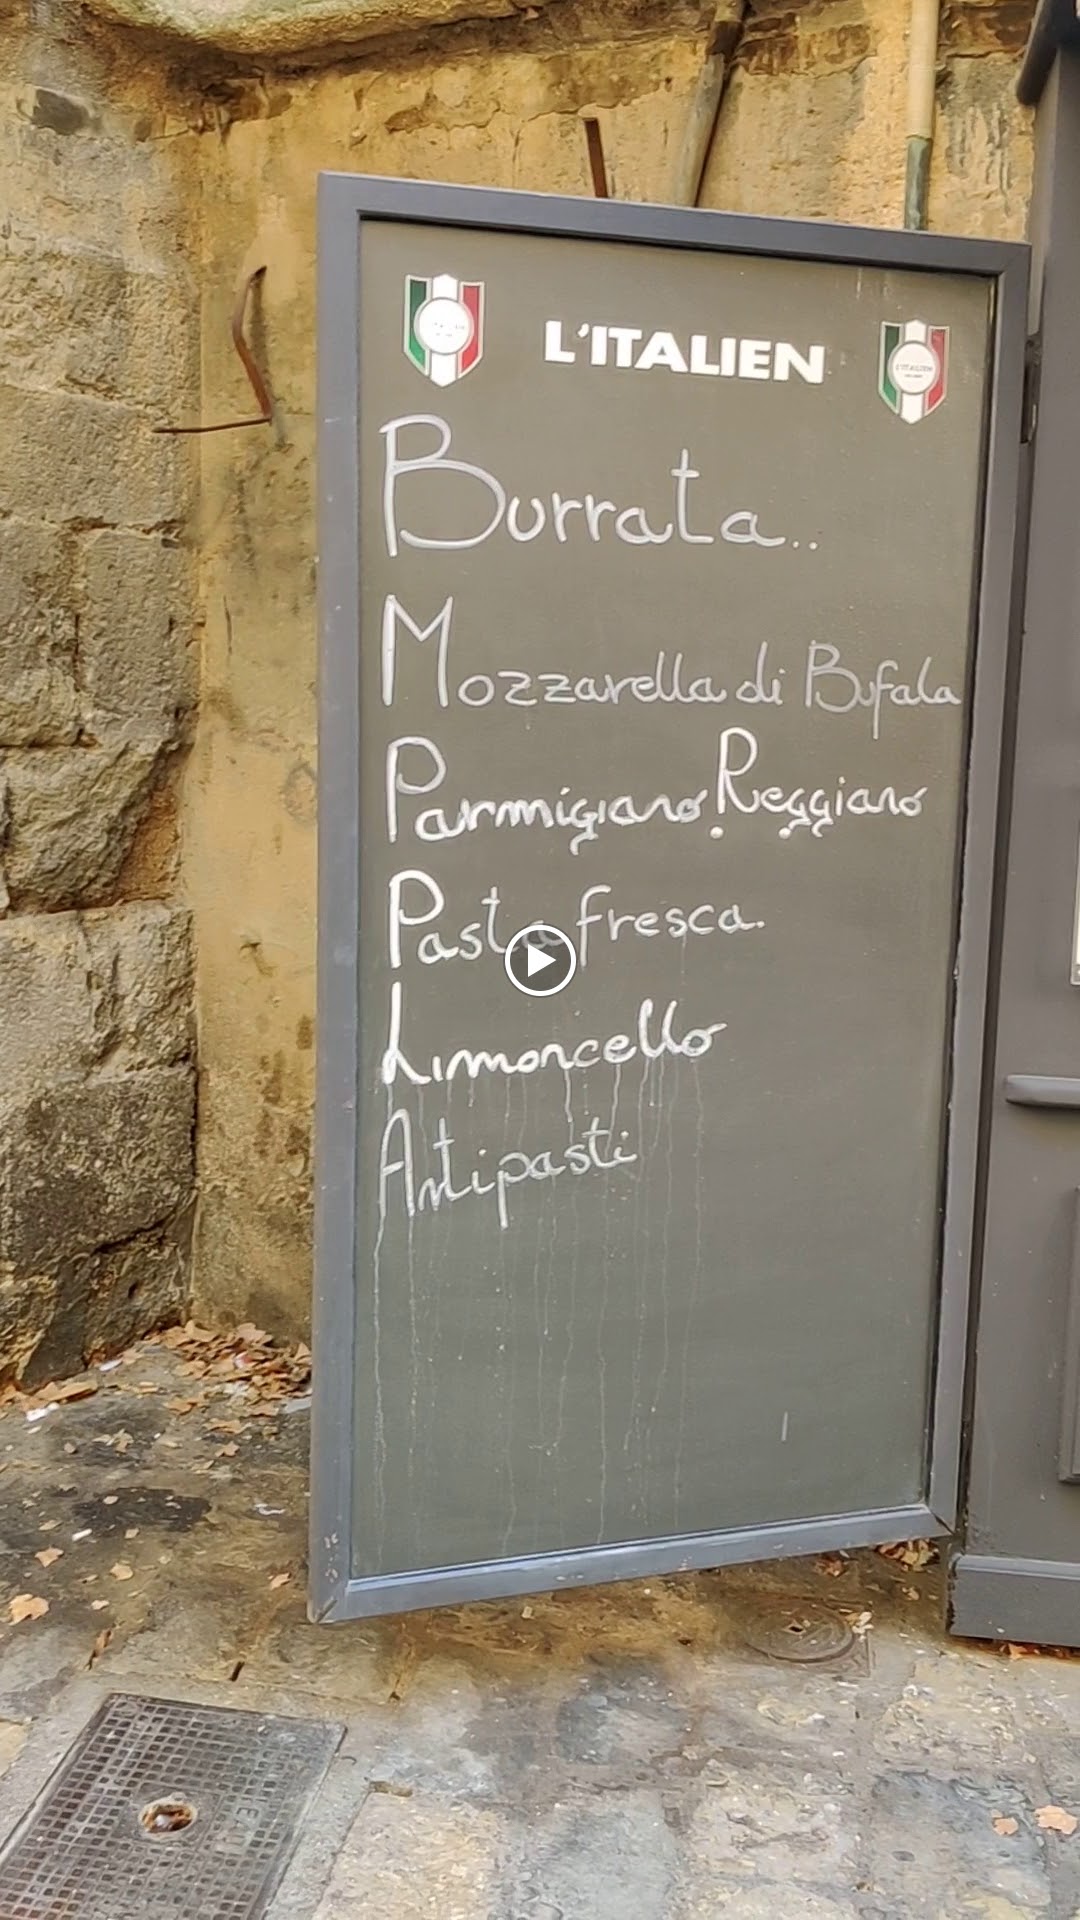 L'ITALIEN
L'ITALIEN
Burrata..
Mozzarella di Bufala
Parmigiano Reggiano
Pasta fresca.
Limoncello
Antipasti